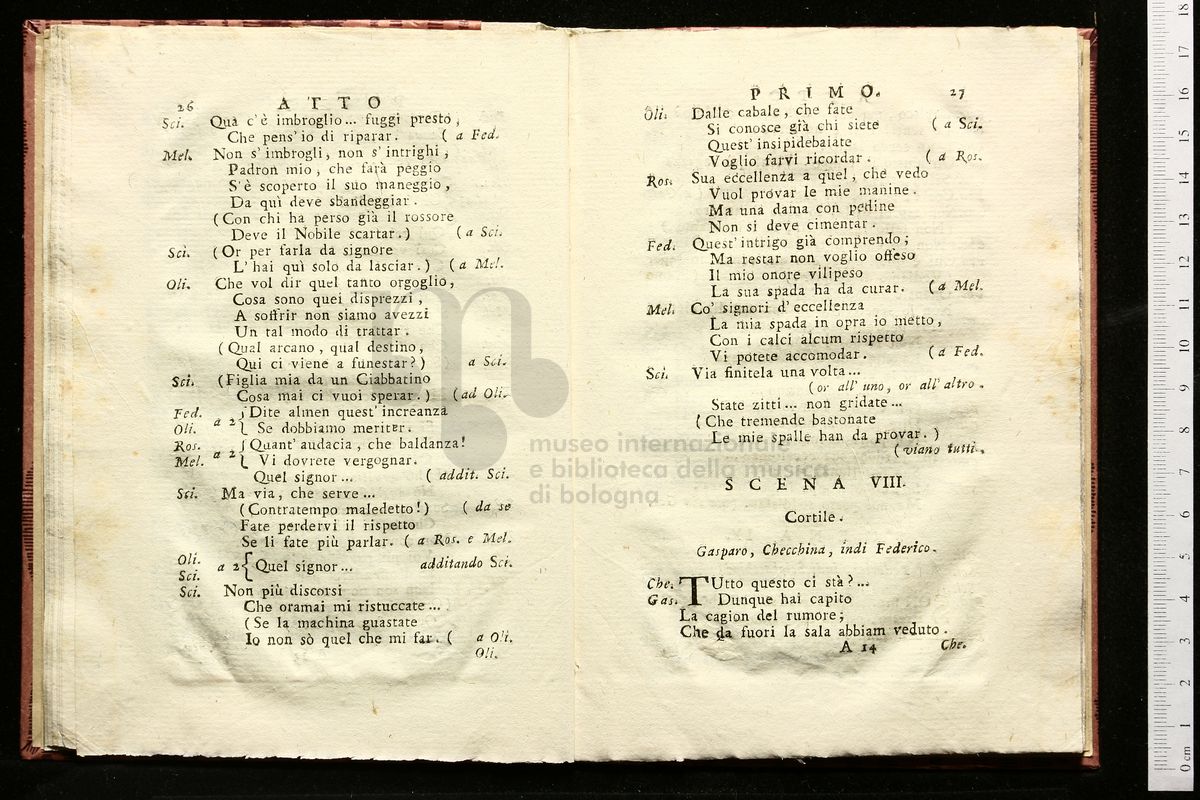 26 ATTO
Sci. Quà c'è imbroglio... fuggi presto,
Che pens'io di riparar. ( a Fed.
Mel. Non s'imbrogli, non s'intrighi,
Padron mio, che farà peggio
S'è scoperto il suo maneggio,
Da quì deve sbandeggiar.
(Con chi ha perso già il rossore
Deve il Nobile scartar.) ( a Sci.
Sci. (Or per farla da signore
L'hai quì solo da lasciar.) ( a Mel.
Oli. Che vol dir quel tanto orgoglio,
Cosa sono quei disprezzi,
A soffrir non siamo avezzi
Un tal modo di trattar.
(Qual arcano, qual destino,
Qui ci viene a funestar?) a Sci.
Sci. (Figlia mia da un Ciabbatino
Cosa mai ci vuoi sperar.) (ad Oli.
Fed. Oli. a 2 { Dite almen quest'increanza
Se dobbiamo meriter.
Ros. Mel. a 2 { Quant'audacia, che baldanza!
Vi dovrete vergognar.
Quel signor... ( addit. Sci.
Sci. Ma via, che serve...
(Contratempo maledetto!) ( da se
Fate perdervi il rispetto
Se li fate più parlar. ( a Ros. e Mel.
Oli. Sci. a 2 { Quel signor... additando Sci.
Sci. Non più discorsi
Che oramai mi ristuccate...
(Se la machina guastate
Io non sò quel che mi far. ( a Oli.
Oli.
PRIMO. 27
Oli. Dalle cabale, che fate
Si conosce già chi siete ( a Sci.
Quest'insipidebaiate
Voglio farvi ricordar. ( a Ros.
Ros. Sua eccellenza a quel, che vedo
Vuol provar le mie manine.
Ma una dama con pedine
Non si deve cimentar.
Fed. Quest'intrigo già comprendo;
Ma restar non voglio offeso
Il mio onore vilipeso
La sua spada ha da curar. (a Mel.
Mel. Co' signori d'eccellenza
La mia spada in opra io metto,
Con i calci alcum rispetto
Vi potete accomodar. ( a Fed.
Sci. Via finitela una volta...
(or all'uno, or all'altro.
State zitti... non gridate...
(Che tremende bastonate
Le mie spalle han da provar.)
(viano tutti.
SCENA VIII.
Cortile.
Gasparo, Checchina, indi Federico.
Che. TUtto questo ci stà?...
Gas. Dunque hai capito
La cagion del rumore;
Che da fuori la sala abbiam veduto.
A 14 Che.
museo internazionale
e biblioteca della musica
di bologna
0 cm 1 2 3 4 5 6 7 8 9 10 11 12 13 14 15 16 17 18